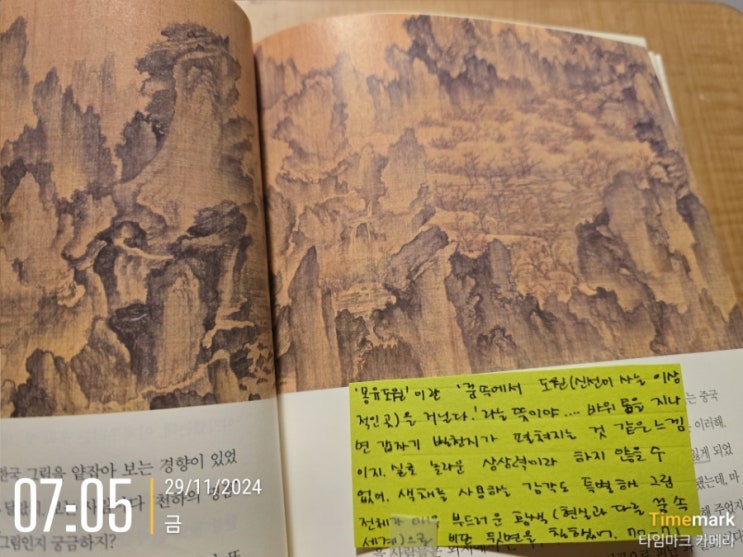 한국 그림을 얕잡아 보는 경향이 있었
천하의 명
그림인지 궁금하지?
'몽유도원'이란 '꿈속에서 도원(신선이 사는 이상
적인 곳)을 거닐다.'라는 뜻이야.... 바위 틈을 지나
면 갑자기 별천지가 펼쳐지는 것 같은 느낌
이지. 실로 놀라운 상상력이라 하지 않을 수
없어. 색채를 사용하는 감각도 특별해 그림
전체가 매우 부드러운 황색(현실과 다른 꿈 속
세계)으로
는 중국
이러해
있게 되었
했는데, 마
해 주었지
07:05
29/11/2024
금
Timemark
타임마크 카메라